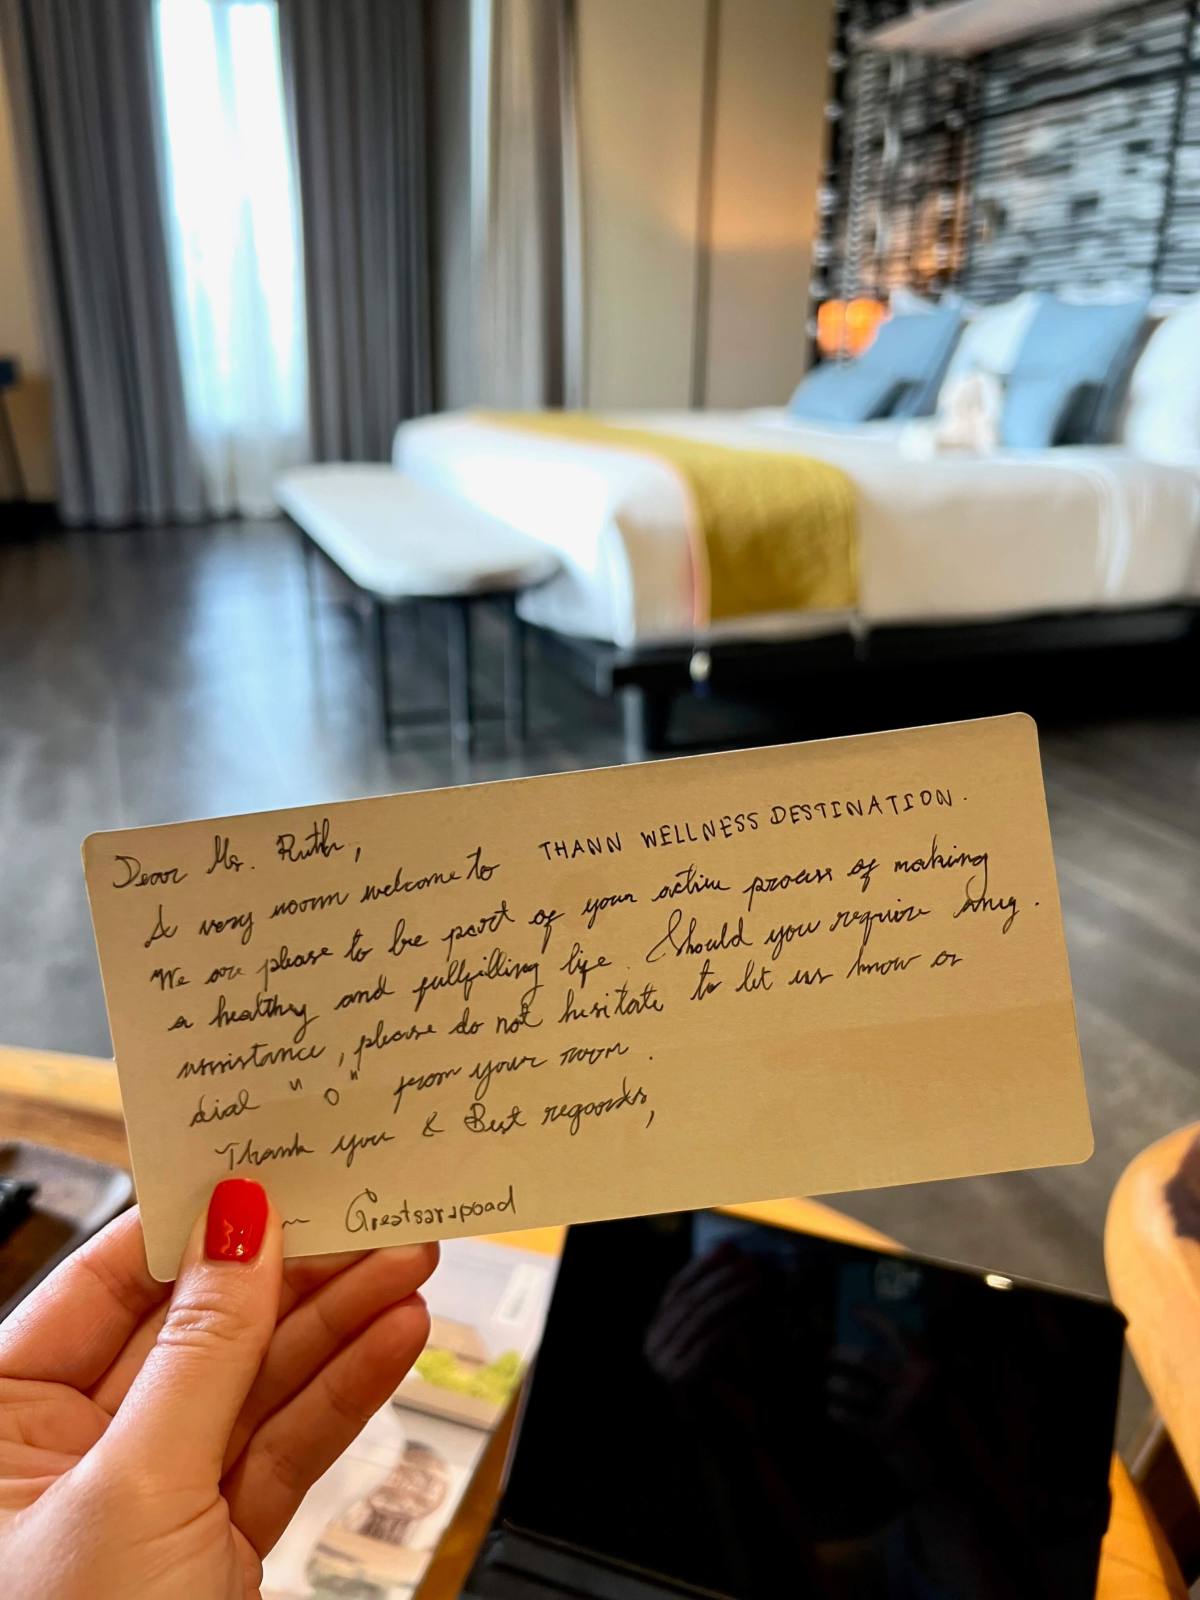 Dear Ms. Ruth,
A very warm welcome to THANN WELLNESS DESTINATION.
We are please to be part of your active process of making
a healthy and fullfilling life. Should you require any.
assistance, please do not hesitate to let us know or
dial "0" from your room.
Thank you & Best regards,
Greatsarapoad